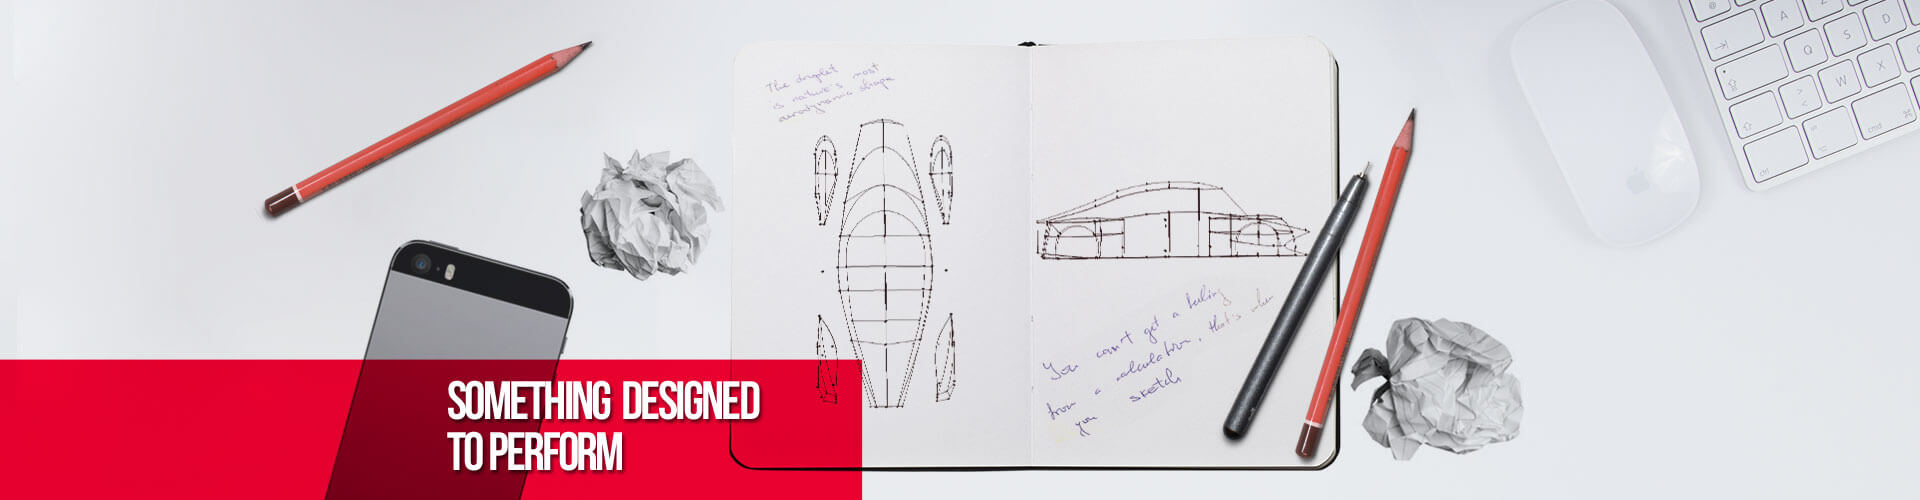 The droplet
is nature's most
aerodynamic shape
You can't get a feeling
from a calculation, that's when
you sketch
SOMETHING DESIGNED
TO PERFORM
A
S
D
Q
W
X
Z
ctrl
alt
cmd